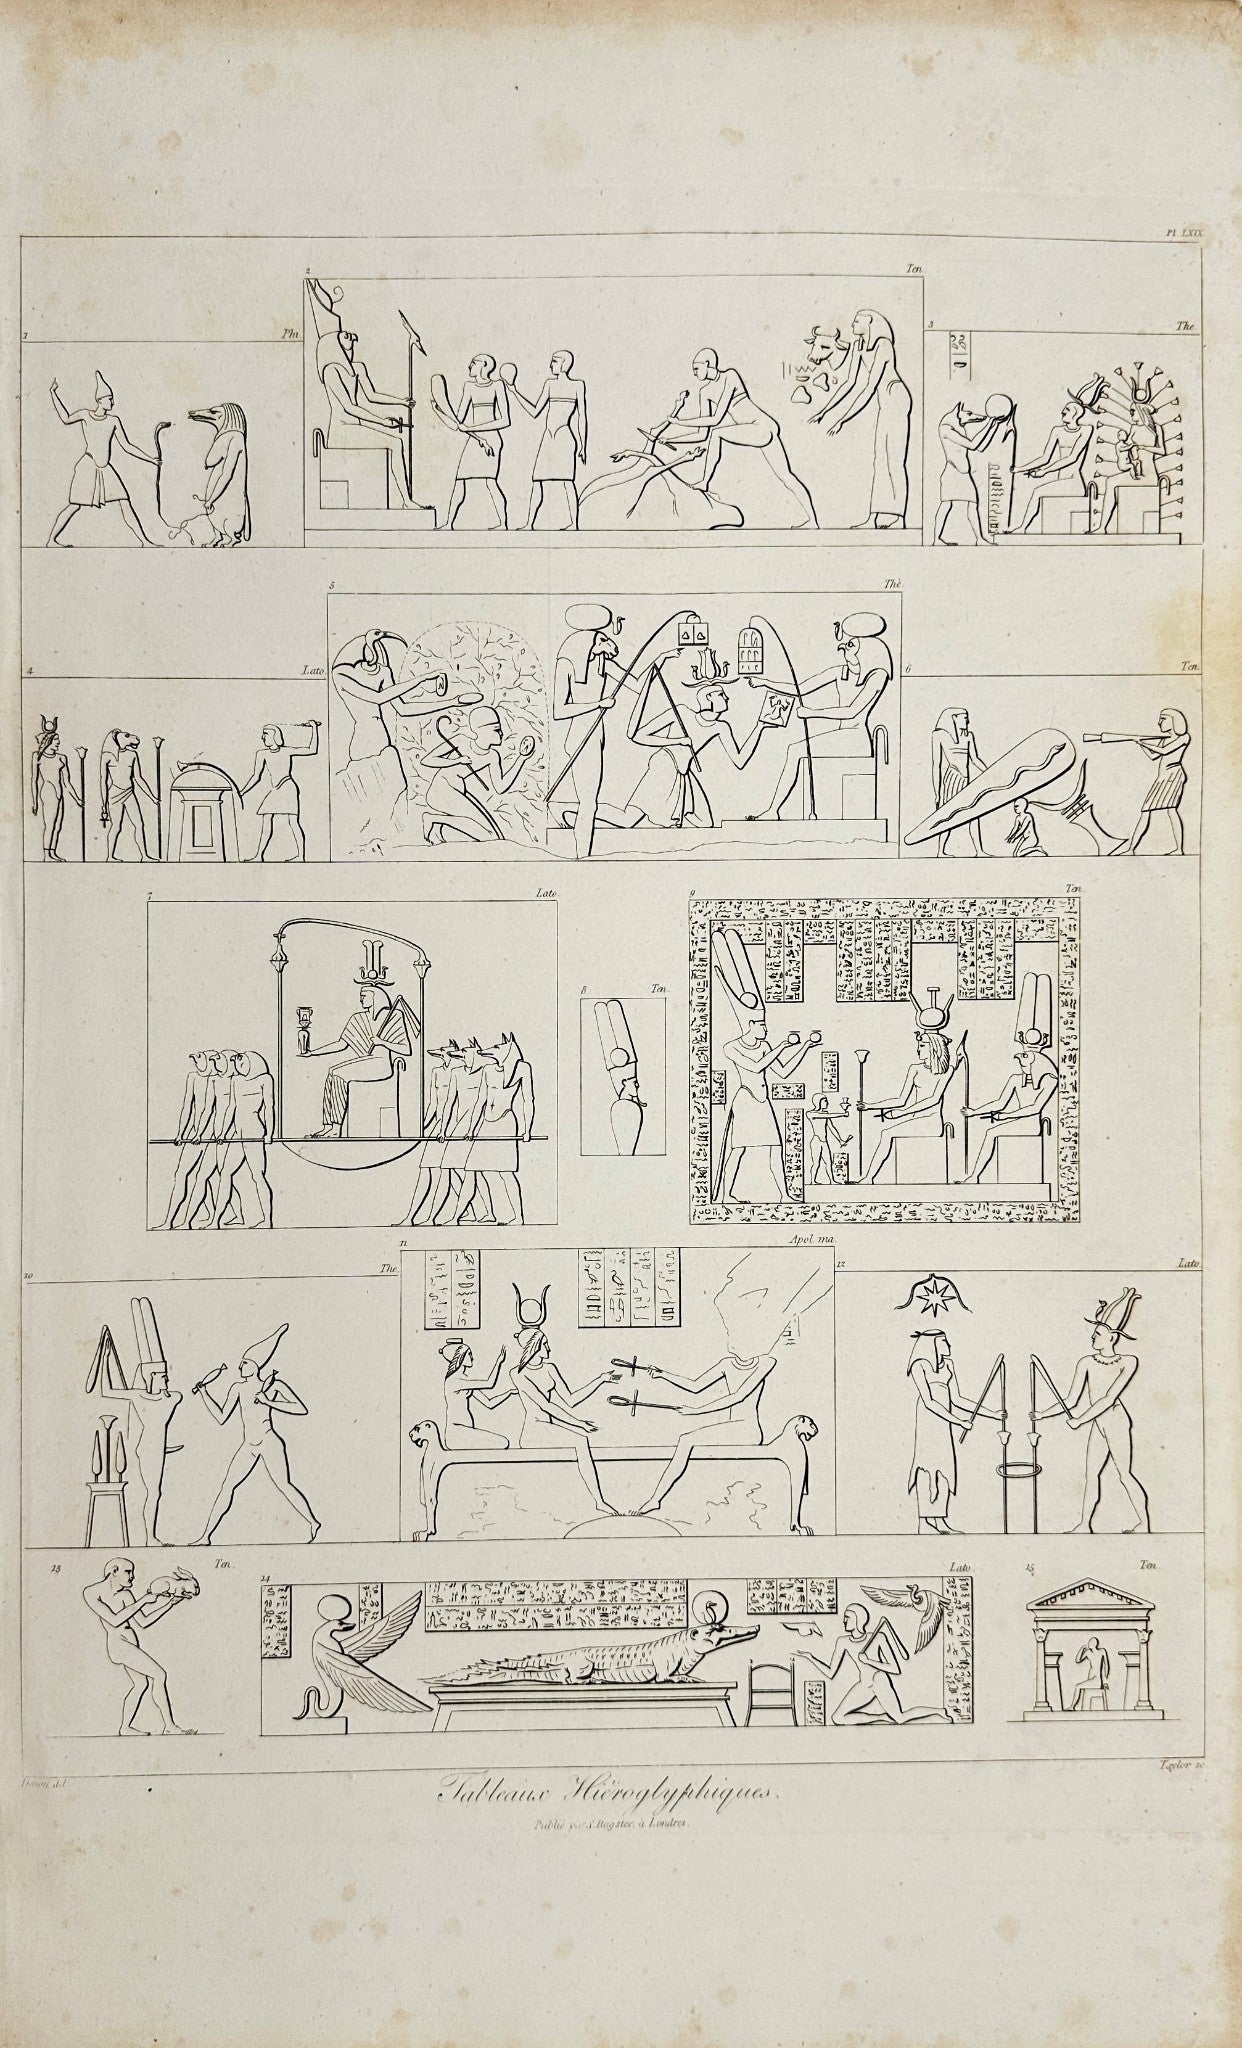 Pl. LXIX
2 Ten.
1 Phi.
3 The.
5 Thè.
4 Lato.
6 Ten.
7 Lato.
9 Ten.
8 Ten.
11 Apol. ma.
10 The.
12 Lato.
13 Ten.
14 Lato.
15 Ten.
Denon del. Taylor sc.
Tableaux Hiëroglyphiques.
Publié par S. Bagster, à Londres.